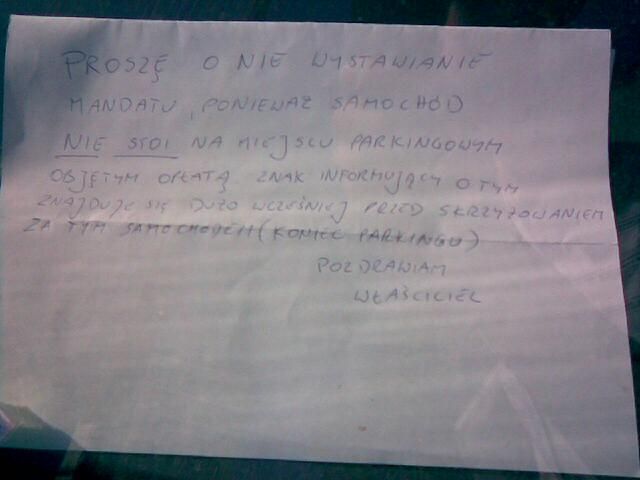 PROSZĘ O NIE WYSTAWIANIE
MANDATU, PONIEWAŻ SAMOCHÓD
NIE STOI NA MIEJSCU PARKINGOWYM
OBJĘTYM OPŁATĄ ZNAK INFORMUJĄCY O TYM
ZNAJDUJE SIĘ DUŻO WCZEŚNIEJ PRZED SKRZYŻOWANIEM
ZA TYM SAMOCHODEM (KONIEC PARKINGU)
POZDRAWIAM
WŁAŚCICIEL